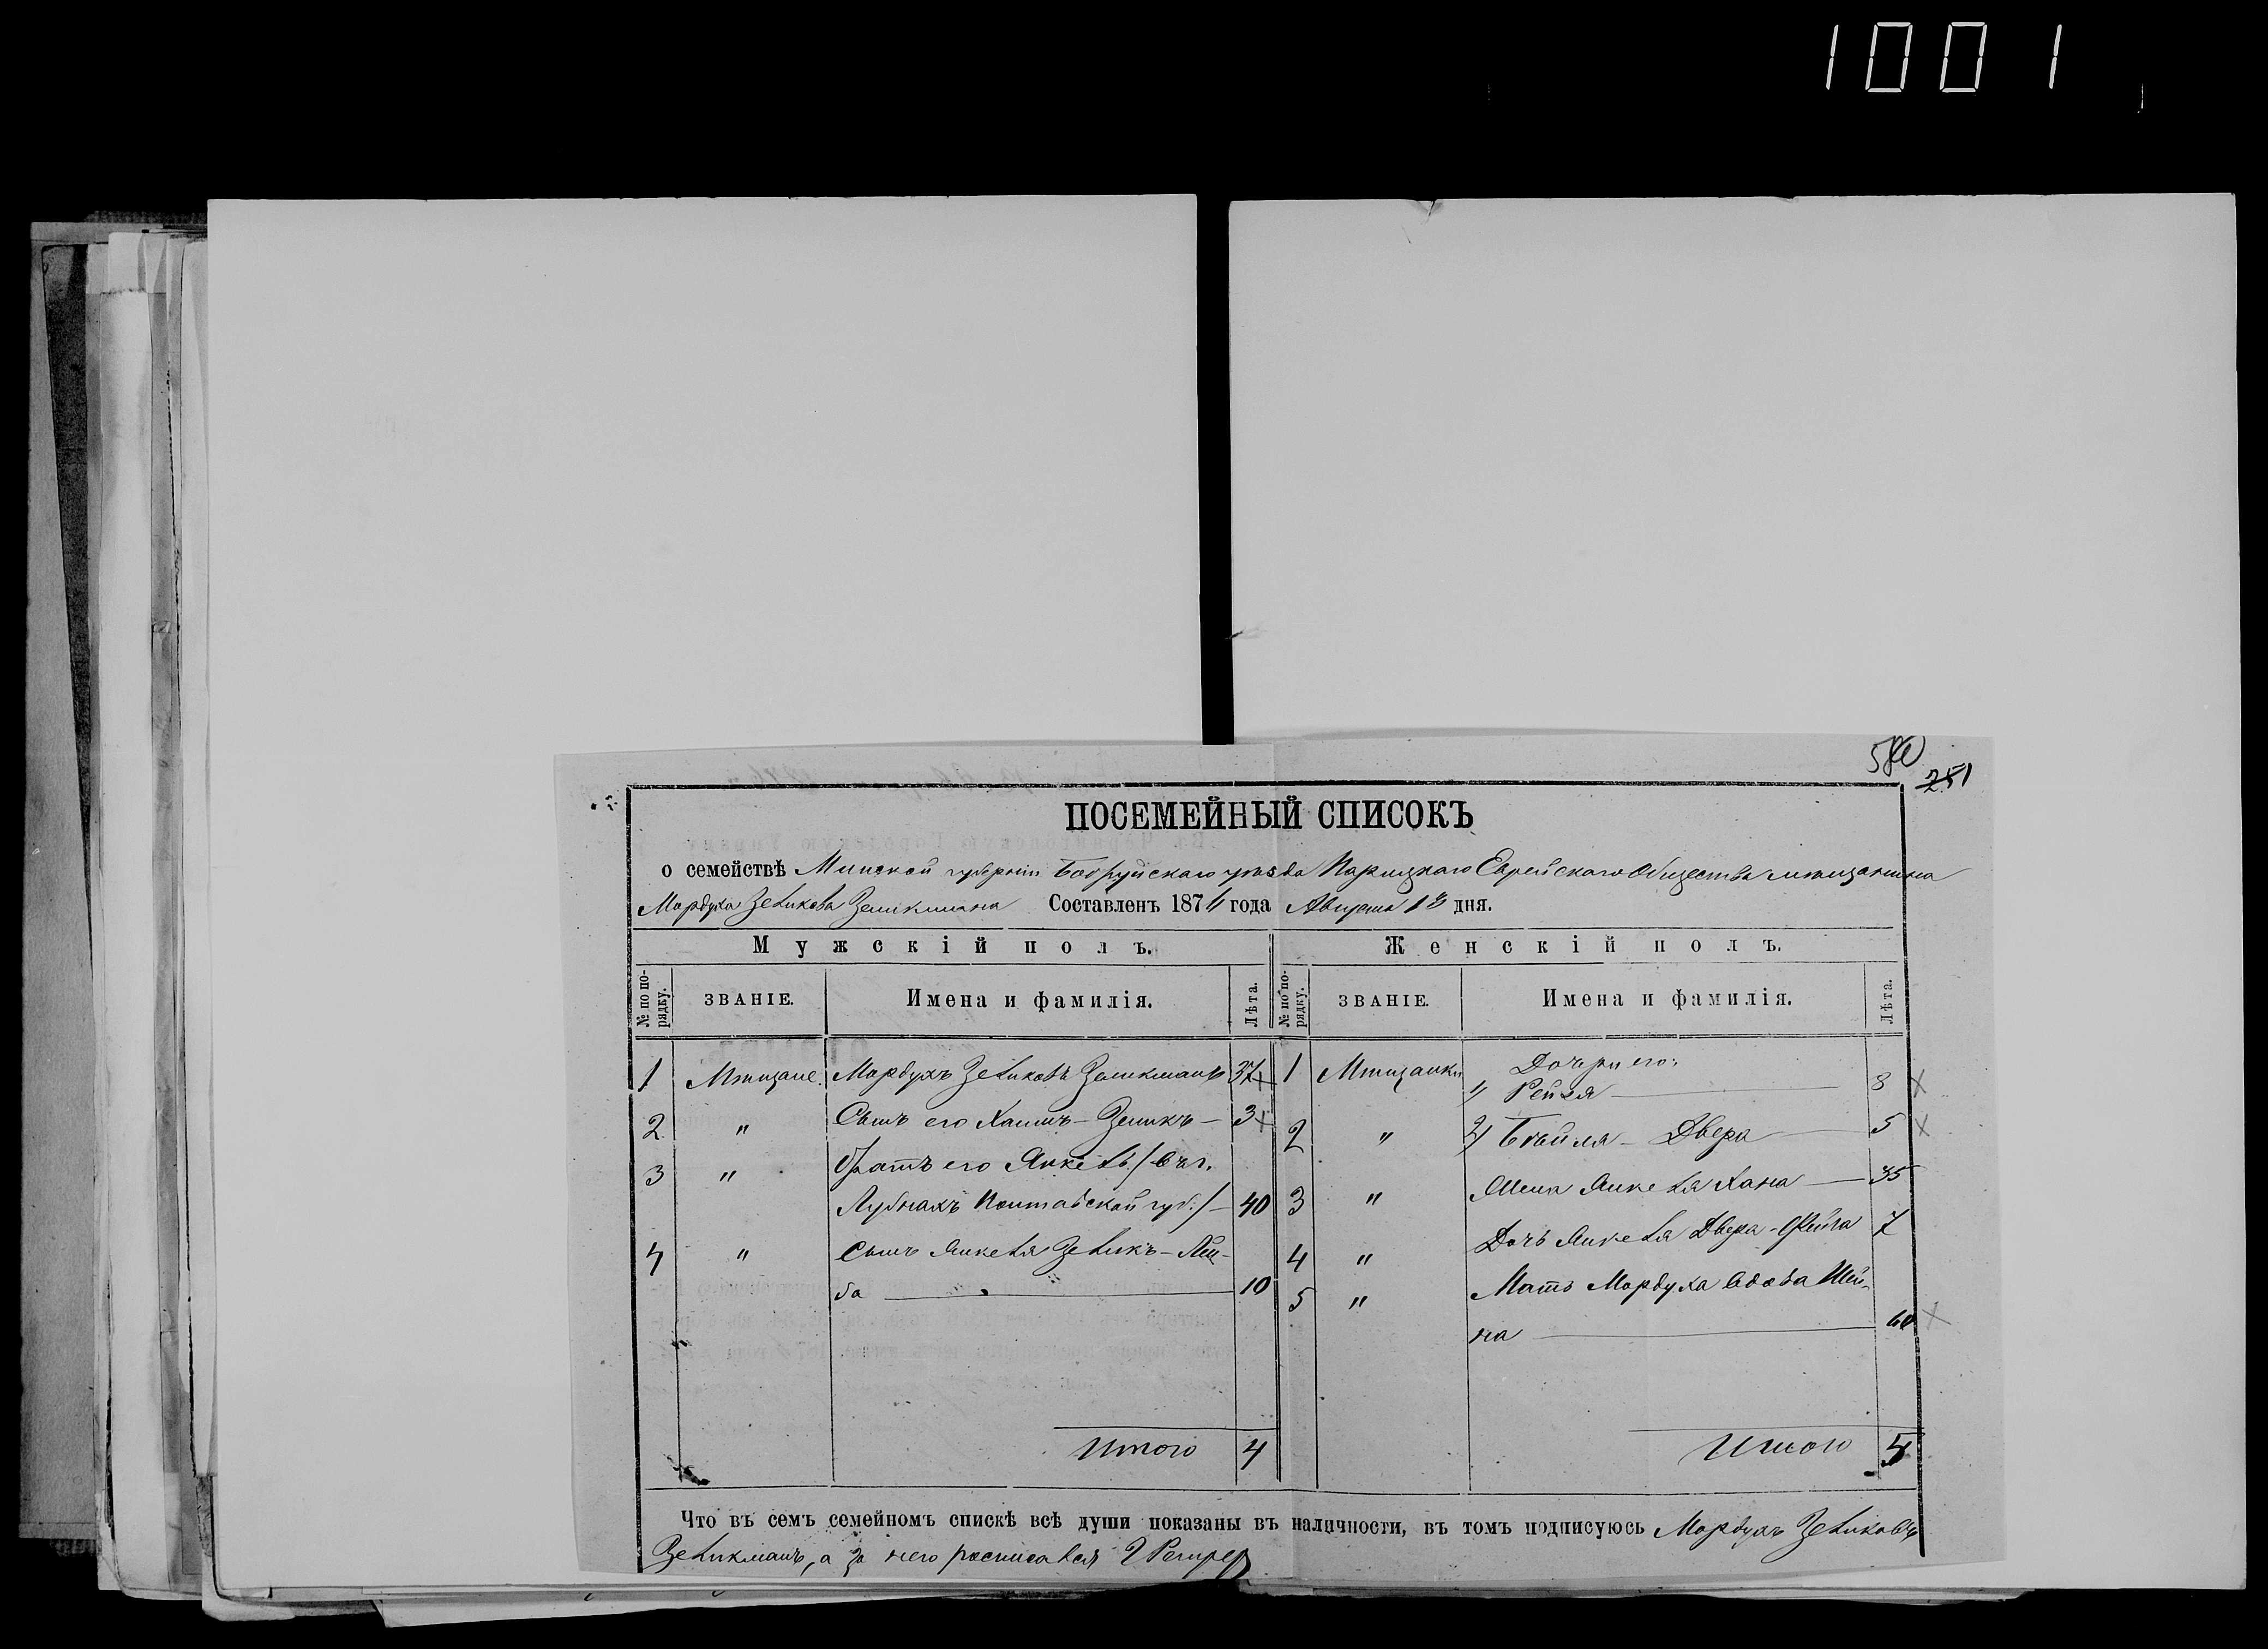 1001
580
251
ПОСЕМЕЙНЫЙ СПИСОКЪ
о семействѣ Минской губерніи Бобруйскаго уѣзда Паричскаго Еврейскаго Общества мѣщанина
Мордуха Зеликова Зеликмана Составленъ 1874 года Августа 18 дня.
Мужскій полъ. Женскій полъ.
№ по порядку. ЗВАНІЕ. Имена и фамилія. Лѣта. № по порядку. ЗВАНІЕ. Имена и фамилія. Лѣта.
1 Мѣщане. Мордухъ Зеликовъ Зеликманъ 37 1 Мѣщанки Дочери его:
" Рейзя 8
2 " Сынъ его Хаимъ-Зеликъ 3 2 " 2, Бейля - Двера 5
3 " братъ его Янкель /въ г.
Лубнахъ Полтавской губ./ 40 3 " Жена Янкеля Хана 35
4 " Сынъ Янкеля Зеликъ-Лей- 4 " Дочь Янкеля Двера-Фейга 7
ба 10 5 " Мать Мордуха вдова Шей-
на 60
Итого 4 Итого 5
Что въ семъ семейномъ спискѣ всѣ души показаны въ наличности, въ томъ подписуюсь Мордухъ Зеликовъ
Зеликманъ, а за него росписался